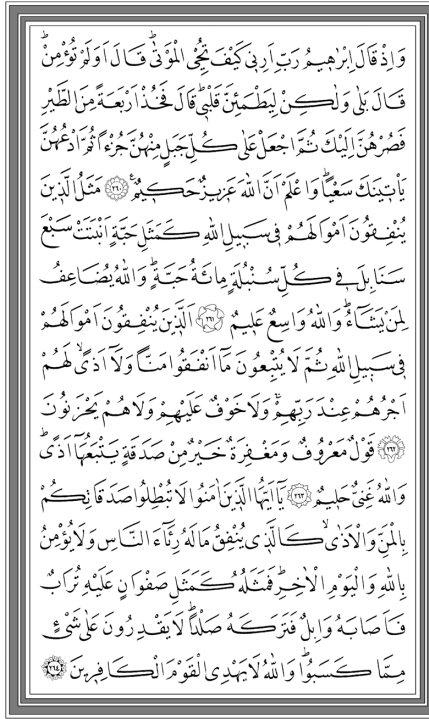 وَاِذْ قَالَ اِبْرٰهٖيمُ رَبِّ اَرِنٖى كَيْفَ تُحْيِ الْمَوْتٰىۜ قَالَ اَوَلَمْ تُؤْمِنْۜ
قَالَ بَلٰى وَلٰكِنْ لِيَطْمَئِنَّ قَلْبٖىۜ قَالَ فَخُذْ اَرْبَعَةً مِنَ الطَّيْرِ
فَصُرْهُنَّ اِلَيْكَ ثُمَّ اجْعَلْ عَلٰى كُلِّ جَبَلٍ مِنْهُنَّ جُزْءًا ثُمَّ ادْعُهُنَّ
يَأْتٖينَكَ سَعْيًاۜ وَاعْلَمْ اَنَّ اللّٰهَ عَزٖيزٌ حَكٖيمٌ ﴿٢٦٠﴾ مَثَلُ الَّذٖينَ
يُنْفِقُونَ اَمْوَالَهُمْ فٖى سَبٖيلِ اللّٰهِ كَمَثَلِ حَبَّةٍ اَنْبَتَتْ سَبْعَ
سَنَابِلَ فٖى كُلِّ سُنْبُلَةٍ مِائَةُ حَبَّةٍۜ وَاللّٰهُ يُضَاعِفُ
لِمَنْ يَشَٓاءُۜ وَاللّٰهُ وَاسِعٌ عَلٖيمٌ ﴿٢٦١﴾ اَلَّذٖينَ يُنْفِقُونَ اَمْوَالَهُمْ
فٖى سَبٖيلِ اللّٰهِ ثُمَّ لَا يُتْبِعُونَ مَٓا اَنْفَقُوا مَنًّا وَلَٓا اَذًىۙ لَهُمْ
اَجْرُهُمْ عِنْدَ رَبِّهِمْۚ وَلَا خَوْفٌ عَلَيْهِمْ وَلَا هُمْ يَحْزَنُونَ
﴿٢٦٢﴾ قَوْلٌ مَعْرُوفٌ وَمَغْفِرَةٌ خَيْرٌ مِنْ صَدَقَةٍ يَتْبَعُهَٓا اَذًىۜ
وَاللّٰهُ غَنِىٌّ حَلٖيمٌ ﴿٢٦٣﴾ يَٓا اَيُّهَا الَّذٖينَ اٰمَنُوا لَا تُبْطِلُوا صَدَقَاتِكُمْ
بِالْمَنِّ وَالْاَذٰىۙ كَالَّذٖى يُنْفِقُ مَالَهُ رِئَٓاءَ النَّاسِ وَلَا يُؤْمِنُ
بِاللّٰهِ وَالْيَوْمِ الْاٰخِرِۜ فَمَثَلُهُ كَمَثَلِ صَفْوَانٍ عَلَيْهِ تُرَابٌ
فَاَصَابَهُ وَابِلٌ فَتَرَكَهُ صَلْدًاۜ لَا يَقْدِرُونَ عَلٰى شَىْءٍ
مِمَّا كَسَبُواۜ وَاللّٰهُ لَا يَهْدِى الْقَوْمَ الْكَافِرٖينَ ﴿٢٦٤﴾